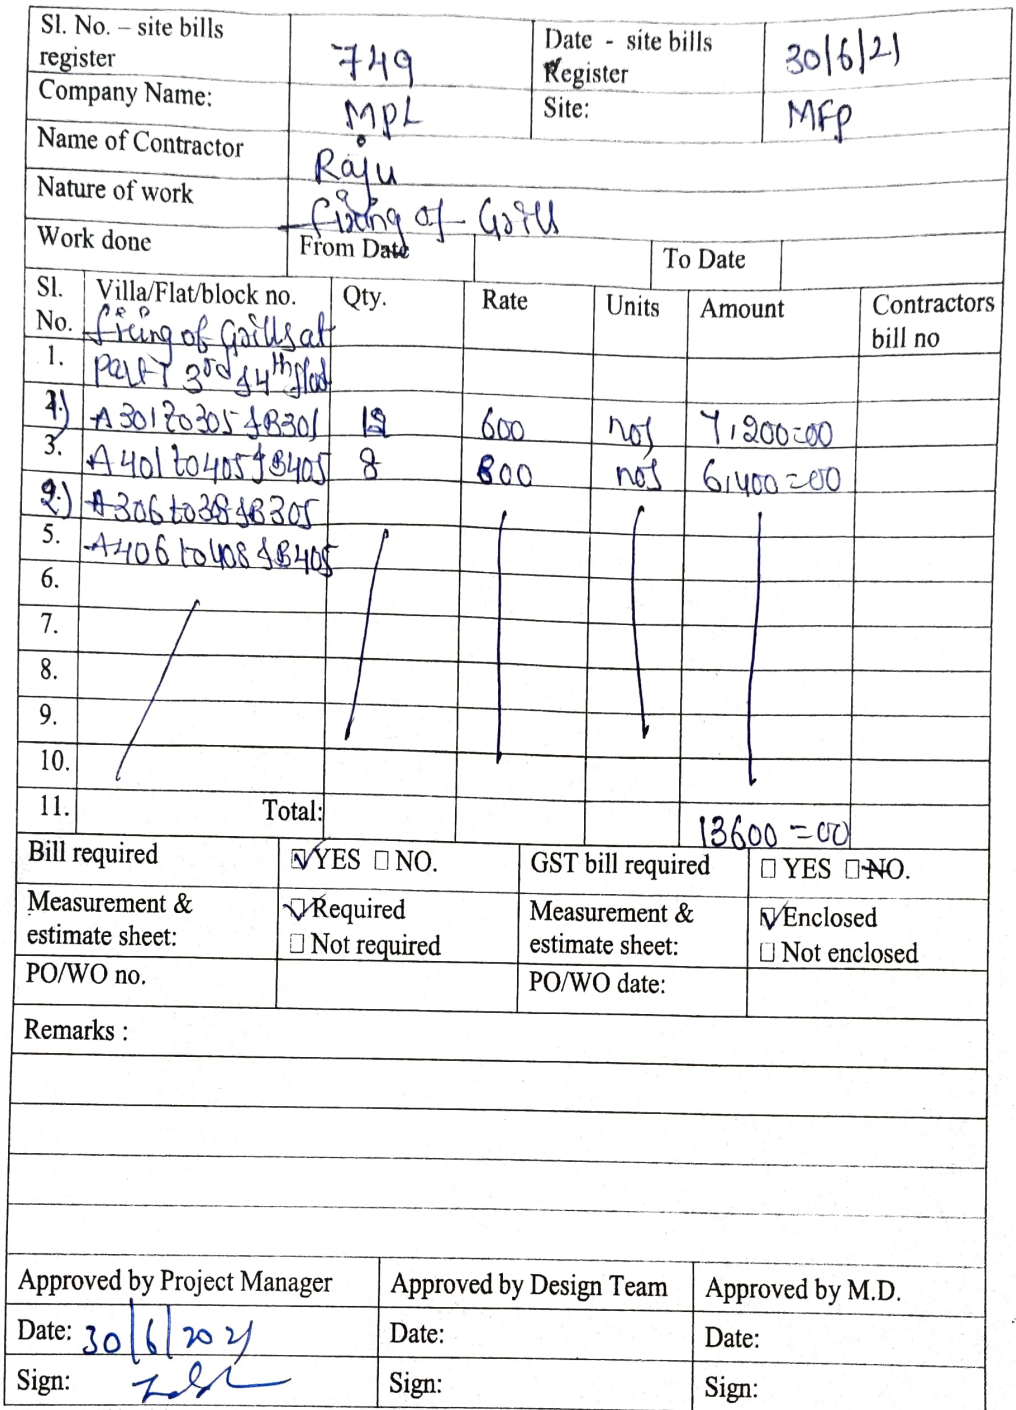 Sl. No. – site bills register 749 Date - site bills Register 30/6/21
Company Name: MPL Site: MFP
Name of Contractor Raju
Nature of work fixing of Grill
Work done From Date To Date
Sl. No. Villa/Flat/block no. Qty. Rate Units Amount Contractors bill no
fixing of Grills at
1. Part I 3rd & 4th floor
1) A301 to 305 & B301 12 600 nos 7,200=00
3. A401 to 405 & B405 8 800 nos 6,400=00
2) A306 to 38 & B305
5. A406 to 408 & B405
6.
7.
8.
9.
10.
11. Total: 13600=00
Bill required YES NO. GST bill required YES NO.
Measurement & estimate sheet: Required Measurement & estimate sheet: Enclosed
Not required Not enclosed
PO/WO no. PO/WO date:
Remarks :
Approved by Project Manager Approved by Design Team Approved by M.D.
Date: 30/6/2021 Date: Date:
Sign: Sign: Sign: